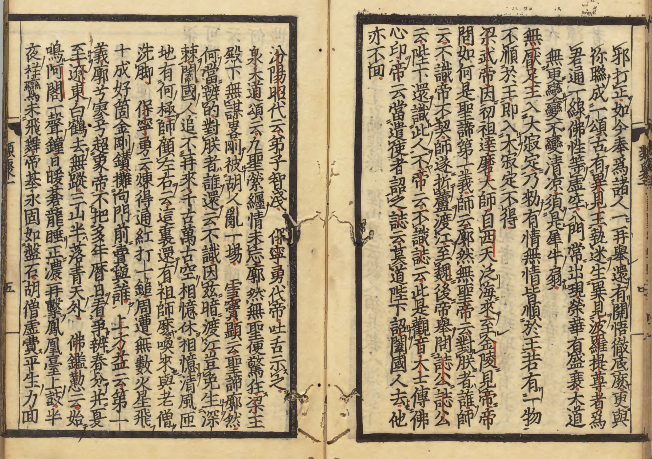 邪打正如今奉為諸人一一再舉還有開悟徹底麼更與
你聯成一頌古有異見王執迷生異見波羅提尊者為
君通一線佛性等虛空入門常出現榮華有盛衰大道
無更變變不變清凉須是犀牛扇
無厭足王入大寂定乃勑有情無情皆順於王若有一物
不順於王即入大寂定不得
梁武帝因初祖達磨大師自西天泛海來至金陵見帝帝
問如何是聖諦第一義師云廓然無聖帝云對朕者誰師
云不識帝不契師遂折蘆渡江至魏後帝舉問誌公誌公
云陛下還識此人不帝云不識誌云此是觀音大士傳佛
心印帝云當遣使者詔之誌云莫道陛下詔闔國人去他
亦不回
汾陽昭代云弟子智淺 保寧勇代帝吐舌示之
泉大道頌云九聖縈纏情未忘廓然無聖便驚狂梁王
殿下無謀畧剛被胡人亂一塲 雪竇顯云聖諦廓然
何當辨的對朕者誰還云不識因茲暗渡江豈免生深
棘闔國人追不再來千古萬古空相憶休相憶清風匝
地有何極師顧左右云這裏還有祖師麼喚來與老僧
洗脚 保寧勇云煉得通紅打一鎚周遭無數火星飛
十成好箇金剛鑽攤向門前賣與誰 上方益云第一
義廓寥寥超東帝不把多年曆日看爭辨春冬并夏
至遼東白鶴去無蹤三山半落青天外 佛鑑懃云始
鳴阿閣一聲鐘日暖蒼龍睡正濃再擊鳳凰臺上鼓半
夜狂鸞未飛舞帝基永固如盤石胡僧虛費平生力面